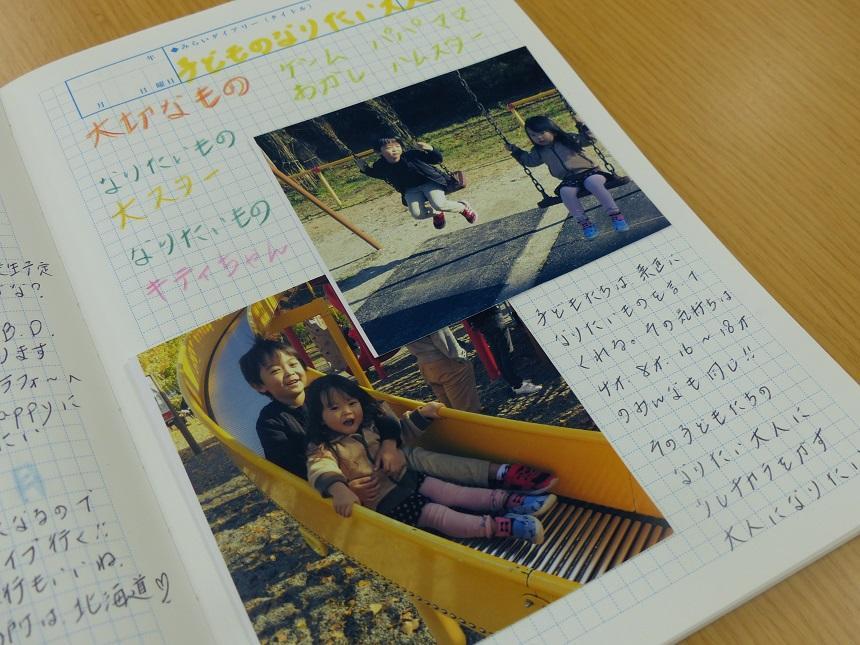 年
月 日 曜日
◆みらいダイアリー(タイトル)
子どものなりたい大人
大切なもの
ゲーム パパ ママ
おかし ハムスター
なりたいもの
大スター
なりたいもの
キティちゃん
子どもたちは素直に
なりたいものを言って
くれる。その気持ちは
4才. 8才. 16〜18才
のみんなも同じ!!
その子どもたちの
なりたい大人に
少しチカラをかす
大人になりたい
B.D.
ります
ラフォ〜へ
appyに
たい
月
なるので
イブ行く!!
行もいいね.
は北海道♡